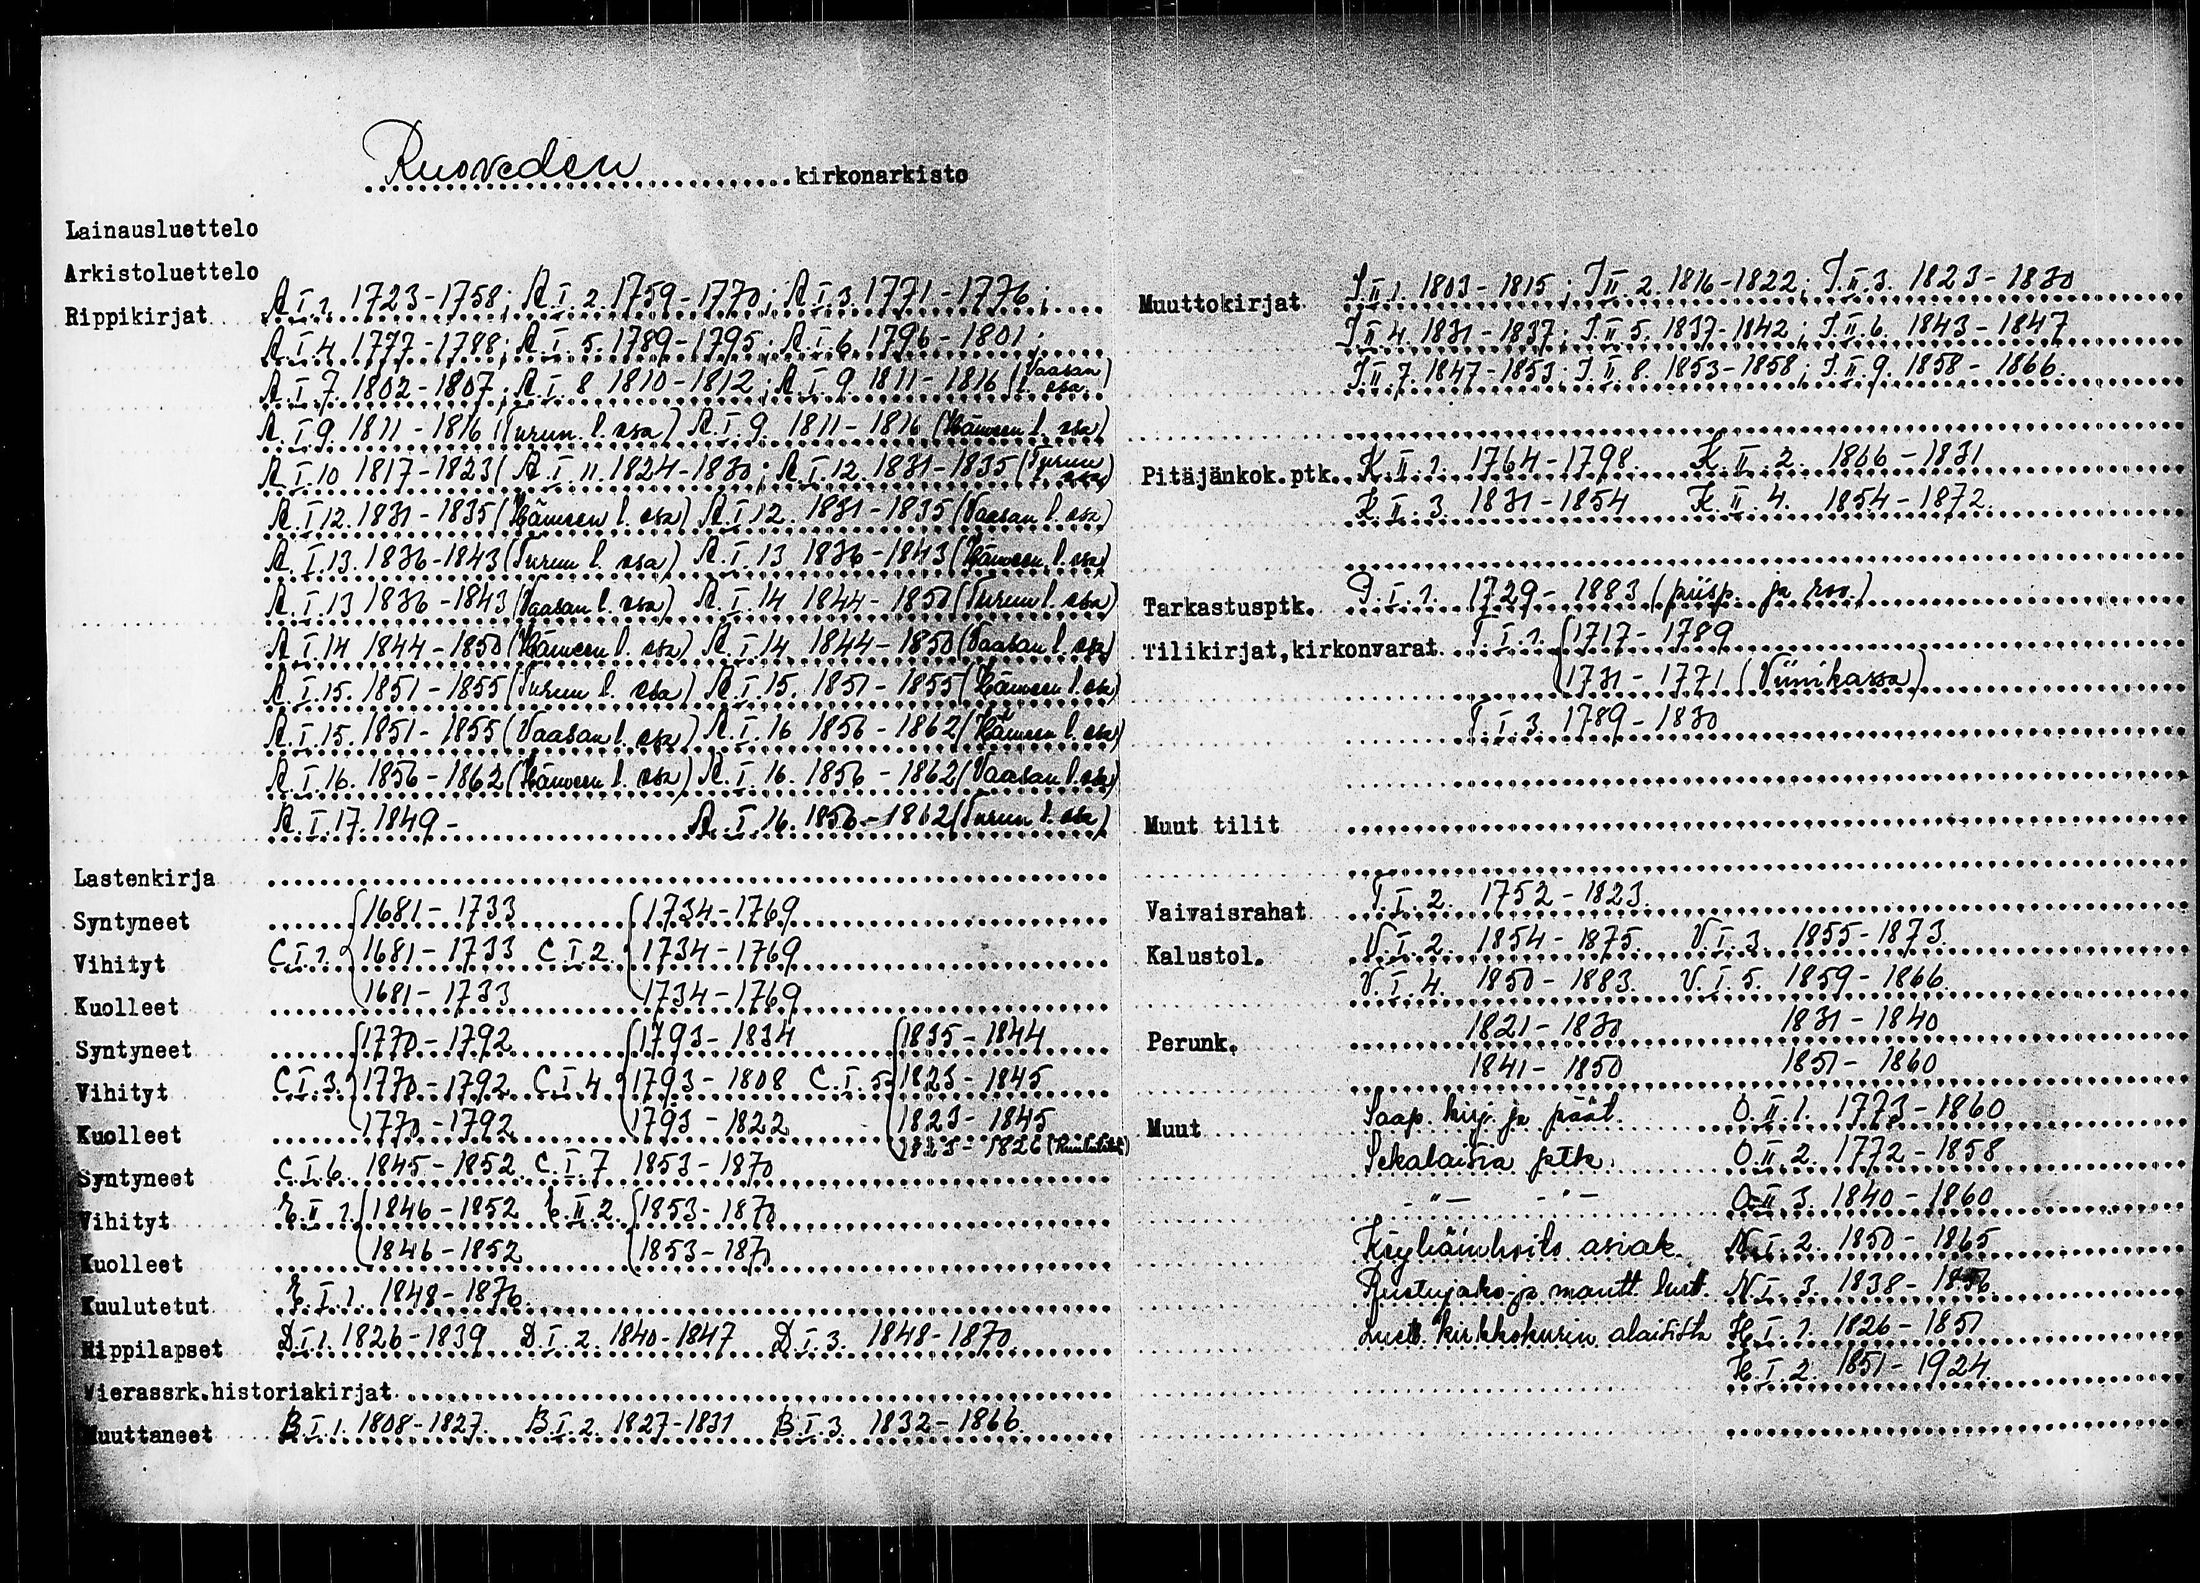 Ruoveden kirkonarkisto
Lainausluettelo
Arkistoluettelo
Rippikirjat A.I.1. 1723-1758; A.I.2. 1759-1770; A.I.3. 1771-1776;
A.I.4 1777-1788; A.I.5. 1789-1795; A.I.6 1796-1801;
A.I.7. 1802-1807; A.I.8 1810-1812; A.I.9. 1811-1816 (Vaasan l. osa)
A.I.9. 1811-1816 (Turun l. osa) A.I.9. 1811-1816 (Hämeen l. osa)
A.I.10 1817-1823; A.I.11. 1824-1830; A.I.12. 1831-1835 (Turun osa)
A.I.12. 1831-1835 (Hämeen l. osa) A.I.12. 1831-1835 (Vaasan l. osa)
A.I.13. 1836-1843 (Turun l. osa) A.I.13 1836-1843 (Hämeen l. osa)
A.I.13 1836-1843 (Vaasan l. osa) A.I.14 1844-1850 (Turun l. osa)
A.I.14 1844-1850 (Hämeen l. osa) A.I.14 1844-1850 (Vaasan l. osa)
A.I.15. 1851-1855 (Turun l. osa) A.I.15. 1851-1855 (Hämeen l. osa)
A.I.15. 1851-1855 (Vaasan l. osa) A.I.16 1856-1862 (Hämeen l. osa)
A.I.16. 1856-1862 (Hämeen l. osa) A.I.16. 1856-1862 (Vaasan l. osa)
A.I.17. 1849- A.I.16. 1856-1862 (Turun l. osa)
Lastenkirja
Syntyneet 1681-1733 1734-1769
Vihityt C.I.1. 1681-1733 C.I.2. 1734-1769
Kuolleet 1681-1733 1734-1769
Syntyneet 1770-1792 1793-1834 1835-1844
Vihityt C.I.3. 1770-1792 C.I.4 1793-1808 C.I.5. 1823-1845
Kuolleet 1770-1792 1793-1822 1823-1845
1823-1826
Syntyneet C.I.6. 1845-1852 C.I.7 1853-1870
Vihityt E.II.1. 1846-1852 E.II.2. 1853-1870
Kuolleet 1846-1852 1853-1870
Kuulutetut E.I.1. 1848-1876
Rippilapset D.I.1. 1826-1839 D.I.2. 1840-1847 D.I.3. 1848-1870
Vierassrk.historiakirjat
Muuttaneet B.I.1. 1808-1827. B.I.2. 1827-1831 B.I.3. 1832-1866.
Muuttokirjat J.II.1. 1803-1815; J.II.2. 1816-1822; J.II.3. 1823-1830
J.II.4. 1831-1837; J.II.5. 1837-1842; J.II.6. 1843-1847
J.II.7. 1847-1853; J.II.8. 1853-1858; J.II.9. 1858-1866.
Pitäjänkok.ptk. K.II.1. 1764-1798. K.II.2. 1866-1831
K.II.3. 1831-1854 K.II.4. 1854-1872.
Tarkastusptk. P.I.1. 1729-1883 (piisp. ja rov.)
Tilikirjat,kirkonvarat T.I.1. 1717-1789
1731-1771 (Viinikassa)
T.I.3. 1789-1830
Muut tilit
Vaivaisrahat T.I.2. 1752-1823.
Kalustol. V.I.2. 1854-1875. V.I.3. 1855-1873.
V.I.4. 1850-1883. V.I.5. 1859-1866.
Perunk. 1821-1830 1831-1840
1841-1850 1851-1860
Muut Saap. kirj. ja päät. O.II.1. 1773-1860
Sekalaisia ptk. O.II.2. 1772-1858
-"- -"- O.II.3. 1840-1860
Köyhäinhoito asiak. N.I.2. 1850-1865
Ruotujako- ja mantt. luet. N.I.3. 1838-
Luett. kirkkokurin alaisista H.I.1. 1826-1851
H.I.2. 1851-1924.